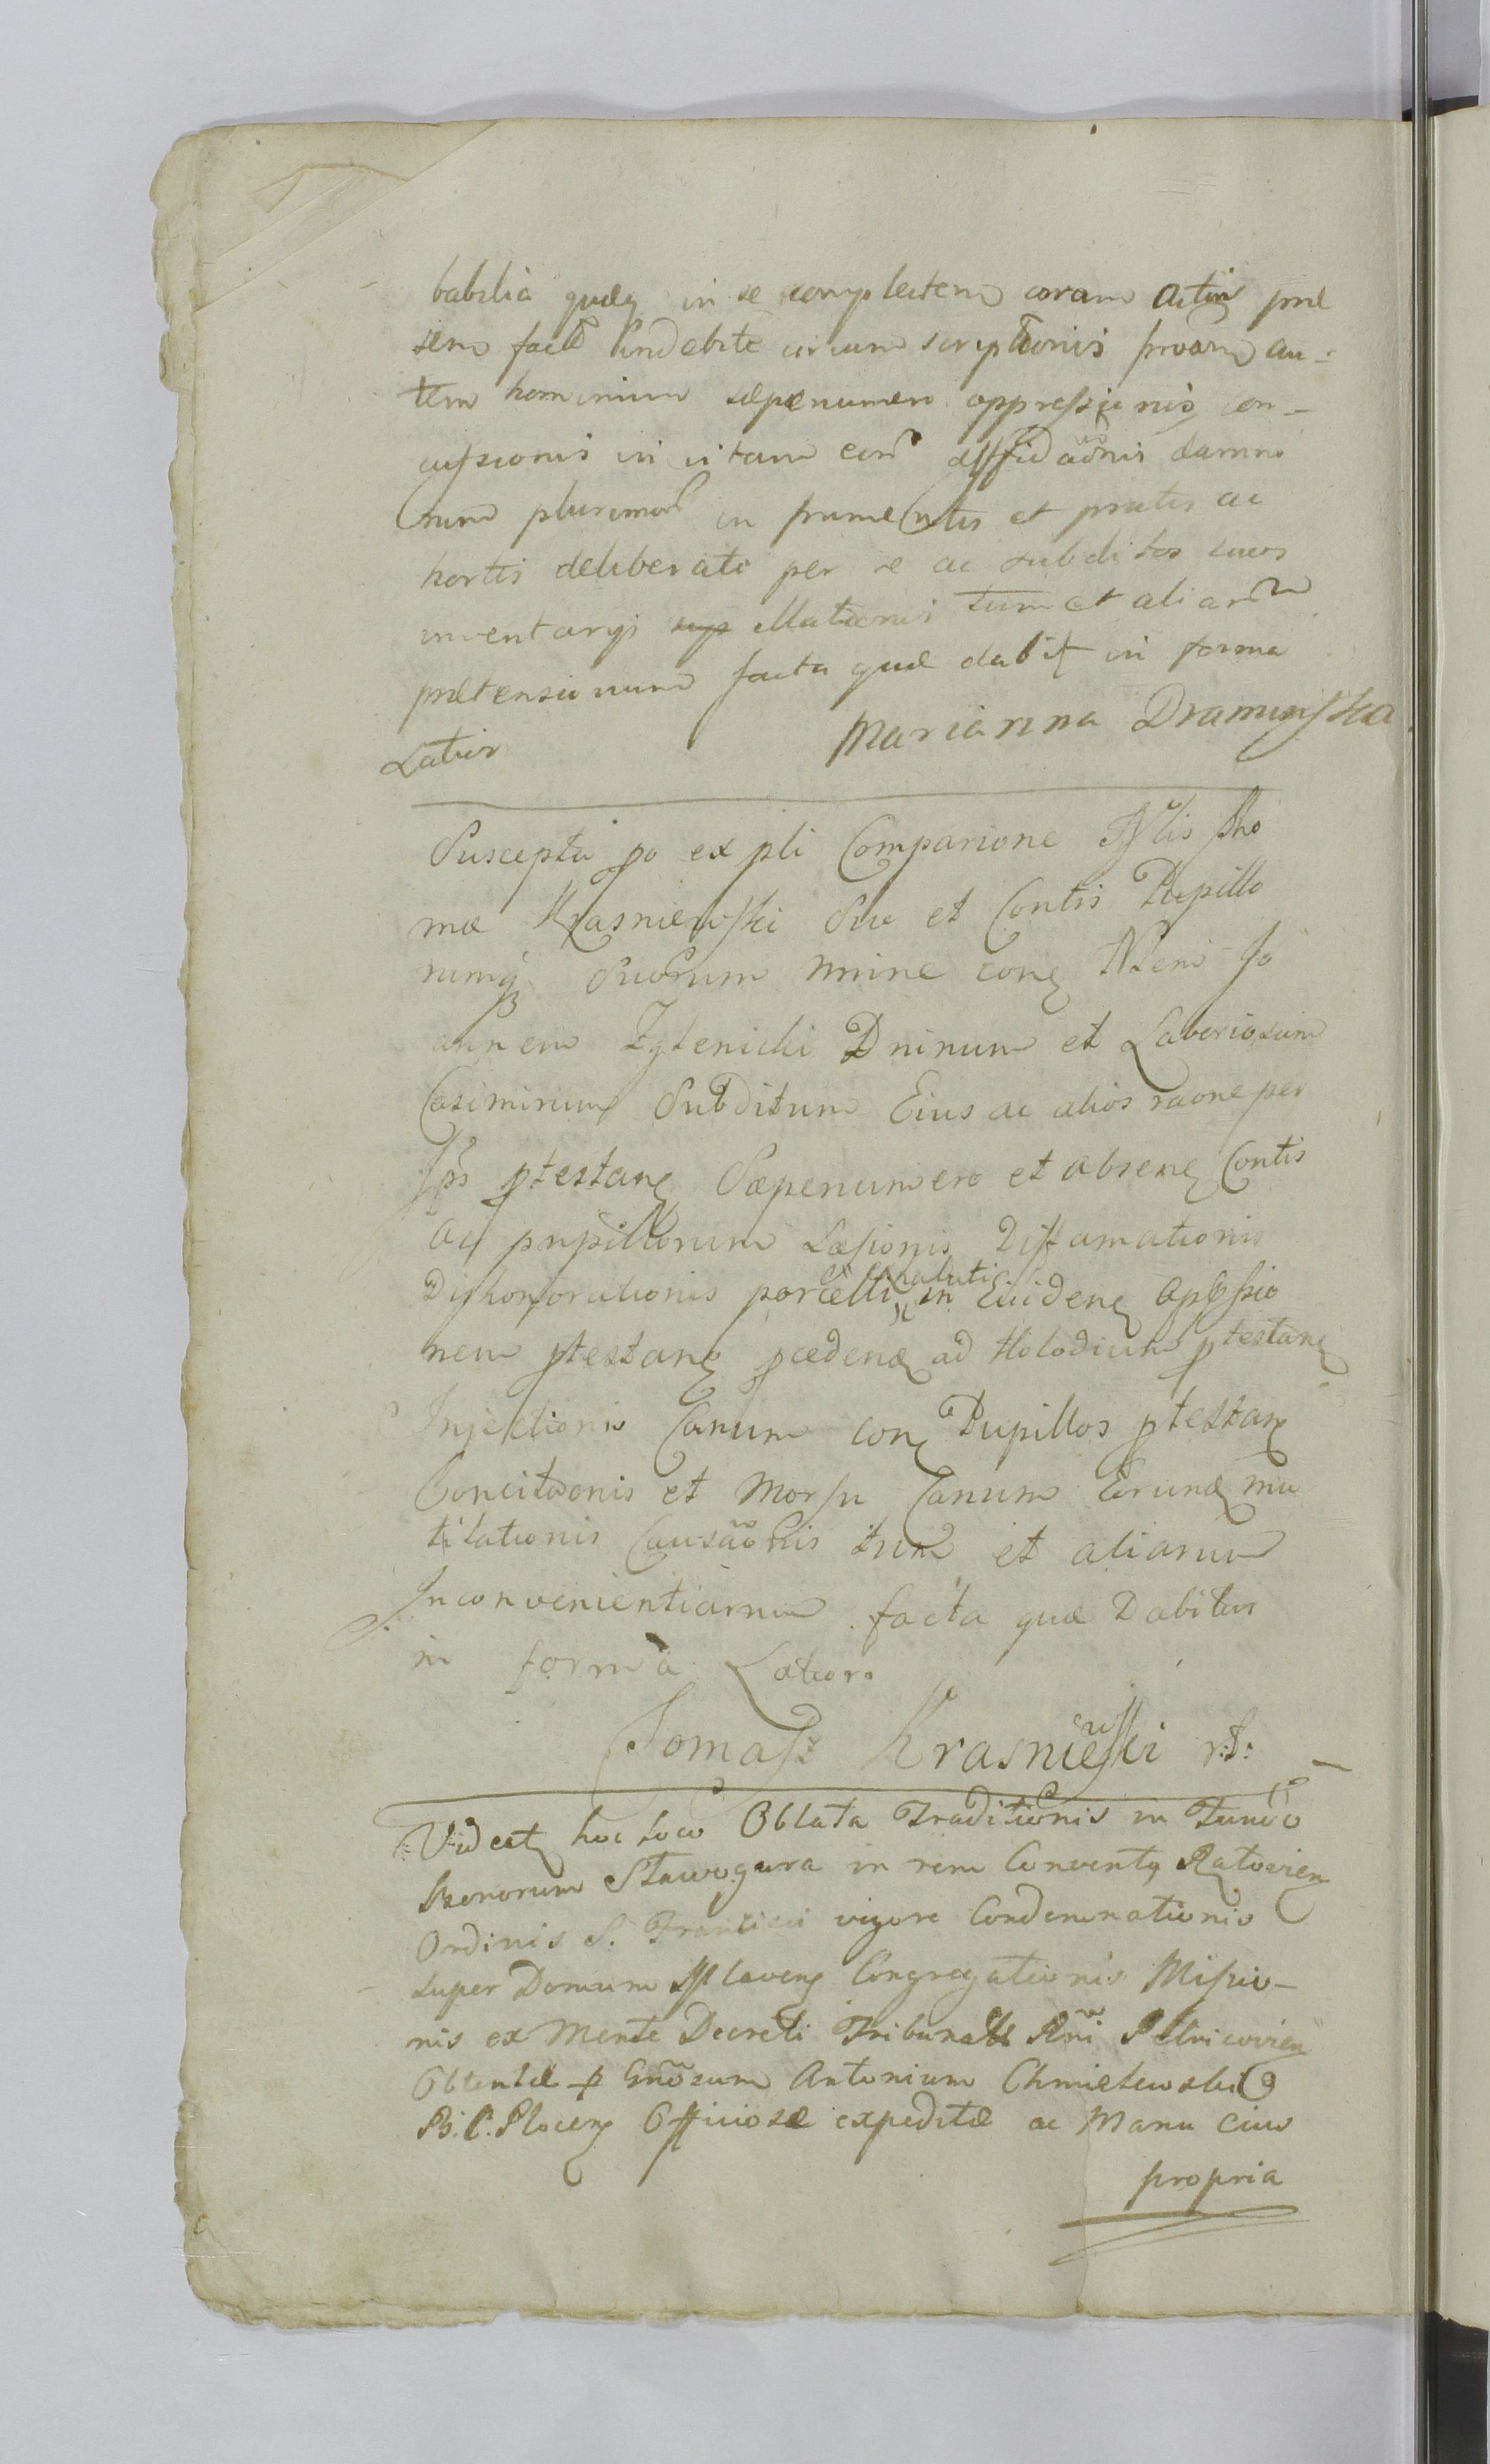 babilia quæq in se complecten coram actis præ
sem factæ indebite circumscriptionis proam au-
tem hominum sæpenumero oppressionis con-
cussionis in vitam eorū diffidaonis damno
rum plurimor in frumentis et pratis ac
hortis deliberate per se ac subditos suos
inventarÿ illationis tum et aliarum
prætensionum facta quæ dabit in forma
Latior
Marianna Draminska
Suscepta po ex pli Comparione Nlis Tho
mæ Krasniewski Suo et Contis Pupillo
rumq Suorum nmine con Nlem Jo
annem Zglenicki Dninum et Laboriosum
Casimirum Subditum Eius ac alios raone per
Ips ptestan Sæpenumero et absen Contis
ac pupillorum Læsionis Diffamationis
Dishonorationis porcelli in Eviden Opssio
nem ptestan ad ptestan
Injectionis Canum con Pupillos ptestan
Concitaonis et Morsu Canum Eorund mu
tilationis Causaonis tum et aliarum
Inconvenientiarum facta quæ Dabitur
in forma Latiori
Tomasz Krasniewski
Videat hoc loco Oblata Traditionis in Fundo
Bonorum Stawogura in rem Conventq Ratovien
Ordinis S. Francisci vigore Condemnationis
super Domum Mlaven Congregationis Missio-
nis ex Mente Decreti Tribunalis Rni Petricovien
Obtentæ p Gnosum Antonium Chmielewski
B. C. Plocen Officiosæ expeditæ ac Manu eius
propria